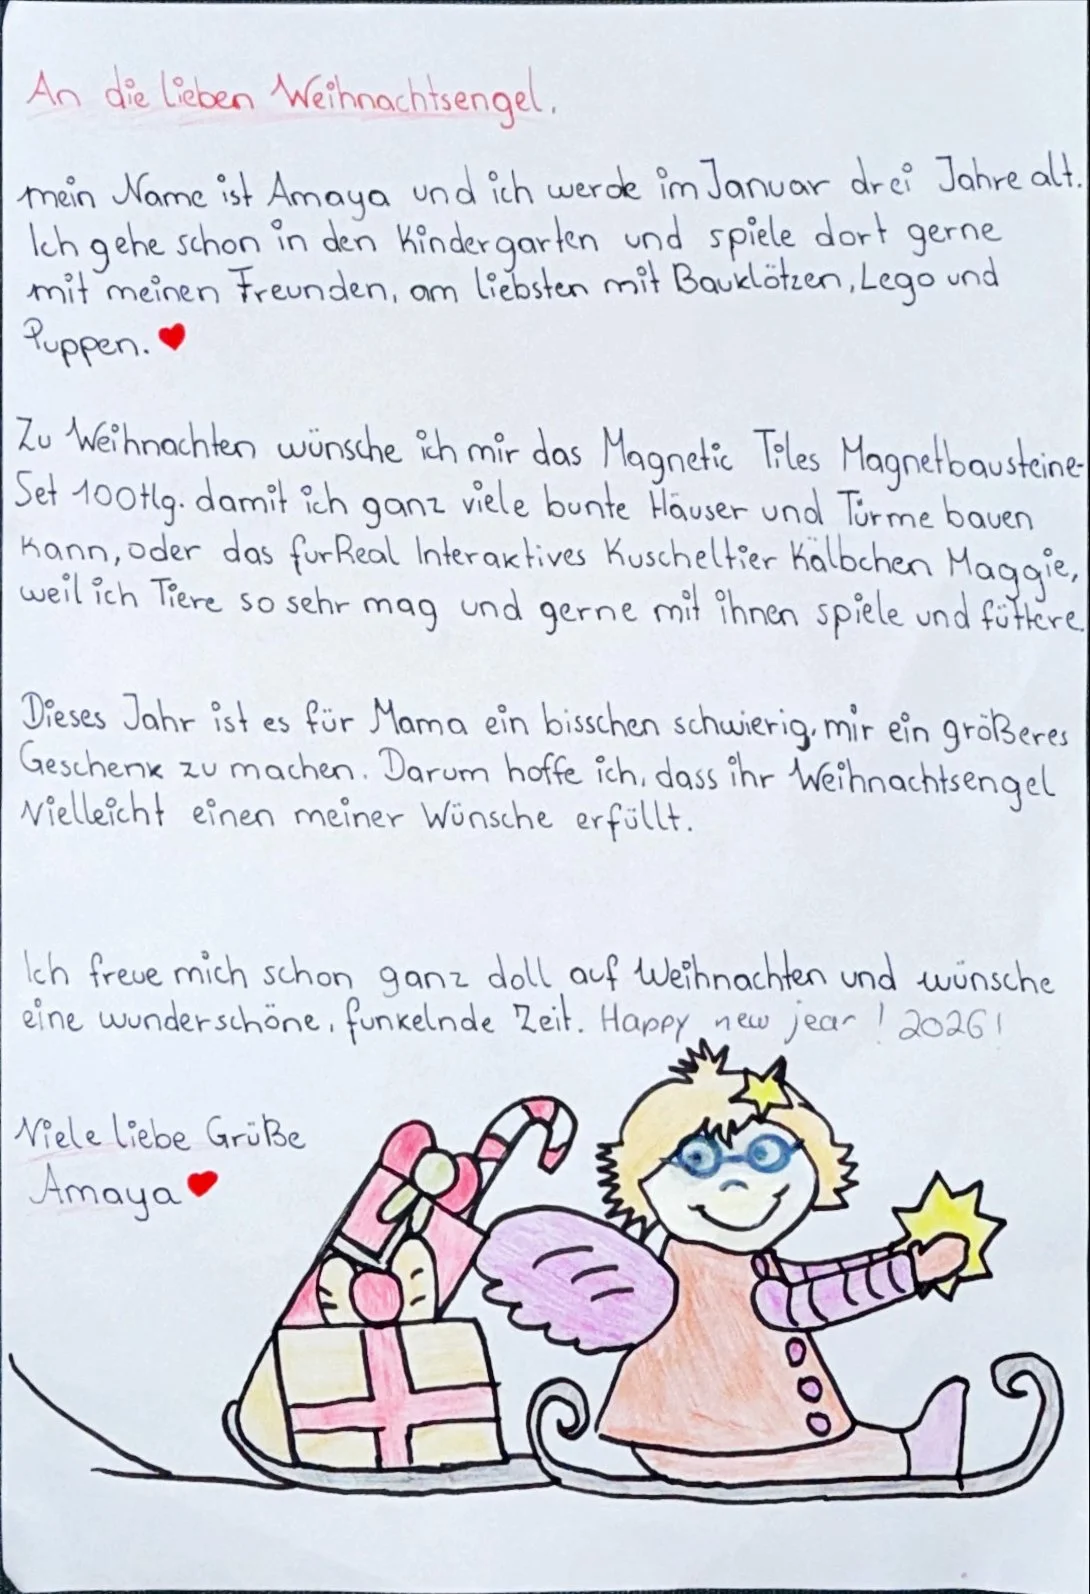 An die lieben Weihnachtsengel,
mein Name ist Amaya und ich werde im Januar drei Jahre alt.
Ich gehe schon in den Kindergarten und spiele dort gerne
mit meinen Freunden, am liebsten mit Bauklötzen, Lego und
Puppen. ♥
Zu Weihnachten wünsche ich mir das Magnetic Tiles Magnetbausteine-
Set 100tlg. damit ich ganz viele bunte Häuser und Türme bauen
kann, oder das furReal Interaktives Kuscheltier Kälbchen Maggie,
weil ich Tiere so sehr mag und gerne mit ihnen spiele und füttere.
Dieses Jahr ist es für Mama ein bisschen schwierig, mir ein größeres
Geschenk zu machen. Darum hoffe ich, dass ihr Weihnachtsengel
vielleicht einen meiner Wünsche erfüllt.
Ich freue mich schon ganz doll auf Weihnachten und wünsche
eine wunderschöne, funkelnde Zeit. Happy new jear! 2026!
Viele liebe Grüße
Amaya ♥